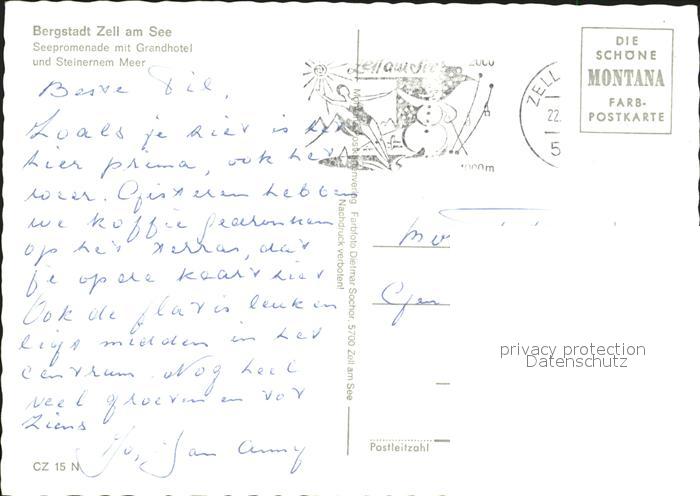 Bergstadt Zell am See
Seepromenade mit Grandhotel
und Steinernem Meer
Beste Dil,
Zoals je hier is het
hier prima, ook het
weer. Gisteren hebben
we koffie gedronken
op het terras, dat
je op de kaart ziet
Ook de flat is leuk en
ligt midden in het
centrum. Nog heel
veel groeten en tot
ziens
Jan Anny
CZ 15 N
Farbfoto Dietmar Sochor, 5700 Zell am See
Nachdruck verboten!
Zell am See
2000
1000m
ZELL
22.
5
DIE
SCHÖNE
MONTANA
FARB-
POSTKARTE
privacy protection
Datenschutz
Postleitzahl